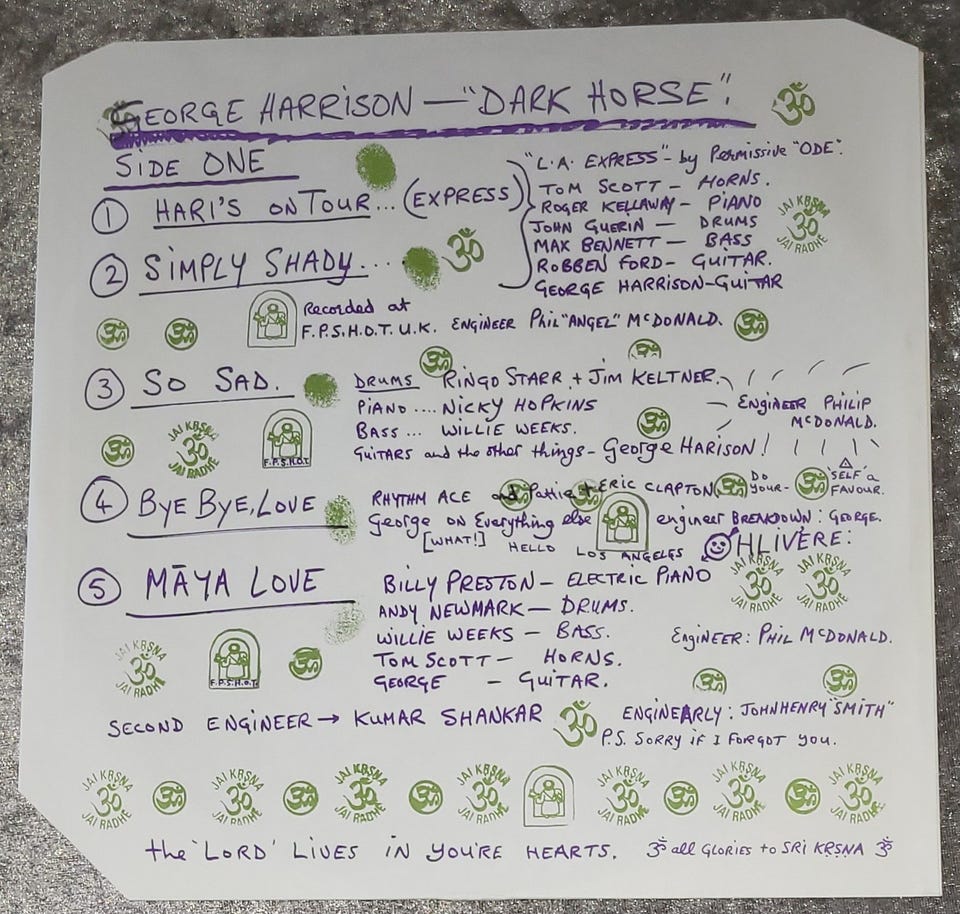 GEORGE HARRISON — "DARK HORSE".
ॐ
SIDE ONE
① HARI'S ON TOUR... (EXPRESS)
"L.A. EXPRESS" - by Permissive "ODE".
TOM SCOTT — HORNS.
ROGER KELLAWAY - PIANO
JOHN GUERIN — DRUMS
MAX BENNETT — BASS
ROBBEN FORD - GUITAR.
GEORGE HARRISON - GUITAR
JAI KRSNA ॐ JAI RADHE
② SIMPLY SHADY... ॐ
Recorded at
F.P.S.H.O.T. U.K. ENGINEER Phil "ANGEL" McDONALD.
ॐ ॐ ॐ
③ SO SAD.
DRUMS RINGO STARR + JIM KELTNER.
PIANO .... NICKY HOPKINS
BASS ... WILLIE WEEKS.
GUITARS and the other things - George HARISON!
ENGINEER PHILIP
McDONALD.
ॐ JAI KRSNA ॐ JAI RADHE F.P.S.H.O.T.
④ BYE BYE, LOVE
RHYTHM ACE and Pattie + ERIC CLAPTON DO YOUR- 'SELF' a FAVOUR.
George on Everything else engineer BREAKDOWN: GEORGE.
[WHAT!] HELLO LOS ANGELES
OHLIVERE:
JAI KRSNA ॐ JAI RADHE JAI KRSNA ॐ JAI RADHE
⑤ MĀYA LOVE
BILLY PRESTON — ELECTRIC PIANO
ANDY NEWMARK — DRUMS.
WILLIE WEEKS — BASS.
TOM SCOTT — HORNS.
GEORGE — GUITAR.
Engineer: PHIL McDONALD.
JAI KRSNA ॐ JAI RADHE F.P.S.H.O.T. ॐ
SECOND ENGINEER → KUMAR SHANKAR ॐ
ENGINEARLY: JOHNHENRY "SMITH"
P.S. SORRY IF I FORGOT YOU.
JAI KRSNA ॐ JAI RADHE ॐ JAI KRSNA ॐ JAI RADHE ॐ JAI KRSNA ॐ JAI RADHE ॐ JAI KRSNA ॐ JAI RADHE JAI KRSNA ॐ JAI RADHE ॐ JAI KRSNA ॐ JAI RADHE ॐ JAI KRSNA ॐ JAI RADHE
the 'LORD' LIVES IN YOU'RE HEARTS. ॐ all GLORIES to SRI KRSNA ॐ